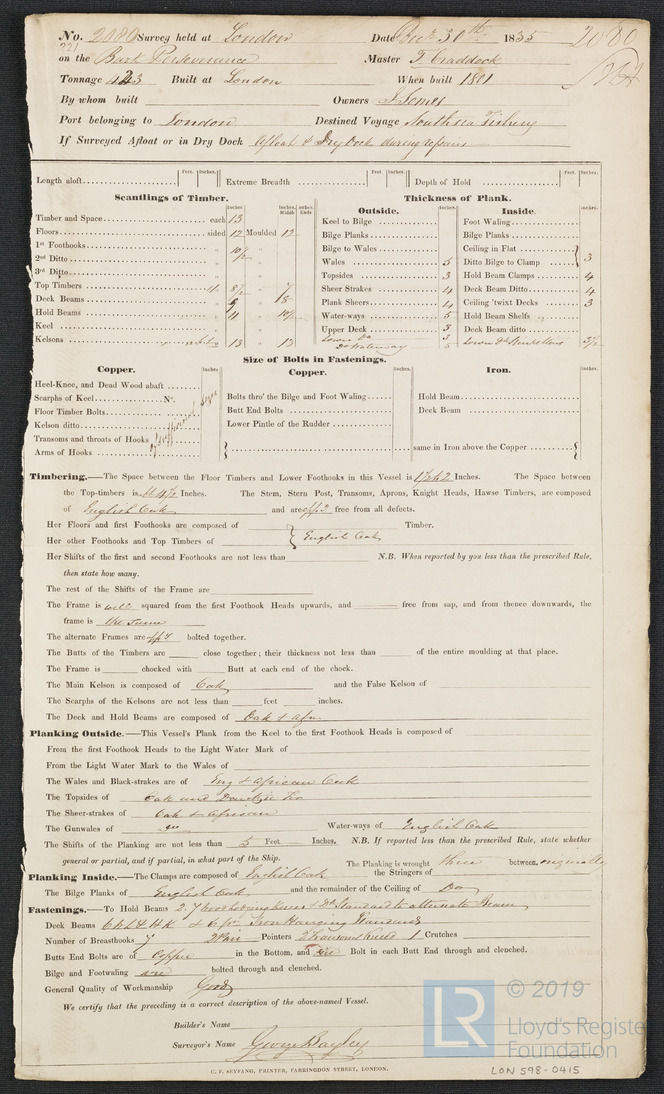 No. 2080 Survey held at London Date 30th 1835 2080
221
on the Bark Perseverance Master T. Craddock
Tonnage 423 Built at London When built 1801
By whom built Owners J. Somes
Port belonging to London Destined Voyage South sea Fishery
If Surveyed Afloat or in Dry Dock Afloat & Dry Dock during repairs
Feet. Inches. Feet. Inches. Feet. Inches.
Length aloft Extreme Breadth Depth of Hold
Scantlings of Timber. Thickness of Plank.
Inches Inches. Middle Inches. Ends Outside. Inches. Inside. Inches.
Timber and Space each 13 Keel to Bilge Foot Waling
Floors sided 12 Moulded 12 Bilge Planks Bilge Planks
1st Foothooks „ 10½ „ Bilge to Wales Ceiling in Flat
2nd Ditto „ „ Wales 5 Ditto Bilge to Clamp 3
3rd Ditto „ „ Topsides 3 Hold Beam Clamps 4
Top Timbers „ 8½ „ 7 Sheer Strakes 4 Deck Beam Ditto 4
Deck Beams „ 9 „ 8 Plank Sheers 4 Ceiling 'twixt Decks 3
Hold Beams „ 11 „ 10½ Water-ways 5 Hold Beam Shelfs
Keel „ „ Upper Deck 3 Deck Beam ditto
Kelsons „ 13 „ 13 Lower Do 3 Lower Dk 3½
Do Waterway 5
Size of Bolts in Fastenings.
Copper. Inches Copper. Inches. Iron. Inches.
Heel-Knee, and Dead Wood abaft
Scarphs of Keel No. Bolts thro' the Bilge and Foot Waling Hold Beam
Floor Timber Bolts Butt End Bolts Deck Beam
Kelson ditto Lower Pintle of the Rudder
Transoms and throats of Hooks
Arms of Hooks same in Iron above the Copper
Timbering.—The Space between the Floor Timbers and Lower Foothooks in this Vessel is 1½ to 2 Inches. The Space between
the Top-timbers is Inches. The Stem, Stern Post, Transoms, Aprons, Knight Heads, Hawse Timbers, are composed
of English Oak and are free from all defects.
Her Floors and first Foothooks are composed of Timber.
Her other Foothooks and Top Timbers of English Oak
Her Shifts of the first and second Foothooks are not less than N.B. When reported by you less than the prescribed Rule,
then state how many.
The rest of the Shifts of the Frame are
The Frame is well squared from the first Foothook Heads upwards, and free from sap, and from thence downwards, the
frame is the same
The alternate Frames are bolted together.
The Butts of the Timbers are close together; their thickness not less than of the entire moulding at that place.
The Frame is chocked with Butt at each end of the chock.
The Main Kelson is composed of Oak and the False Kelson of
The Scarphs of the Kelsons are not less than feet inches.
The Deck and Hold Beams are composed of Oak & Afn
Planking Outside.—This Vessel's Plank from the Keel to the first Foothook Heads is composed of
From the first Foothook Heads to the Light Water Mark of
From the Light Water Mark to the Wales of
The Wales and Black-strakes are of Eng & African Oak
The Topsides of Oak and Dantzic Fir
The Sheer-strakes of Oak & African
The Gunwales of Do Water-ways of English Oak
The Shifts of the Planking are not less than 5 Feet Inches. N.B. If reported less than the prescribed Rule, state whether
general or partial, and if partial, in what part of the Ship. The Planking is wrought three between originally
Planking Inside.—The Clamps are composed of English Oak the Stringers of
The Bilge Planks of English Oak and the remainder of the Ceiling of Do
Fastenings.—To Hold Beams 2 Wood lodging knees & Standard to alternate Beam
Deck Beams & 6 pr Iron Hanging Standards
Number of Breasthooks 7 2 Pair Pointers 2 Transom 1 Crutches
Butts End Bolts are of Copper in the Bottom, and Bolt in each Butt End through and clenched.
Bilge and Footwaling are bolted through and clenched.
General Quality of Workmanship Good
We certify that the preceding is a correct description of the above-named Vessel.
Builder's Name
Surveyor's Name George Bayley
C. F. SEYFANG, PRINTER, FARRINGDON STREET, LONDON.
LR © 2019
Lloyd's Register
Foundation
LON 598-0415